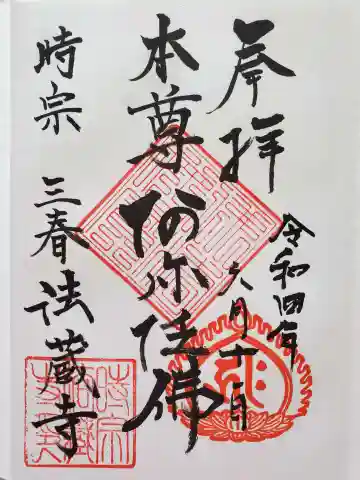 奉拝
令和四年
六月十一日
本尊
阿弥陀佛
時宗 三春 法蔵寺